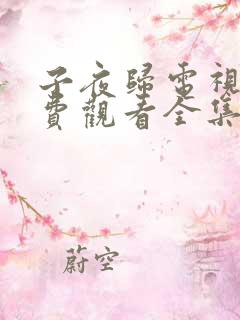 子夜歸電視
費觀看全集
蔚空